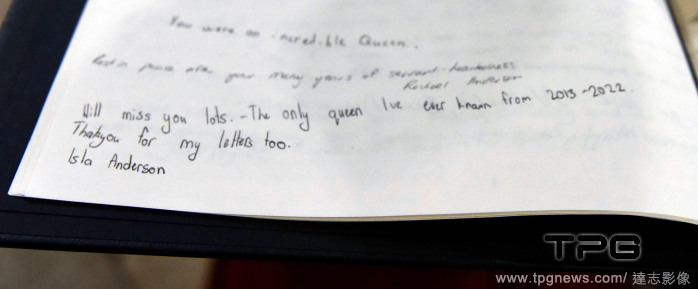 You were an incredible Queen.
Rest in peace after your many years of servant-heartedness
Rachael Anderson
Will miss you lots. - The only queen I've ever known from 2013-2022.
Thankyou for my letters too.
Isla Anderson
TPG
www.tpgnews.com/ 達志影像